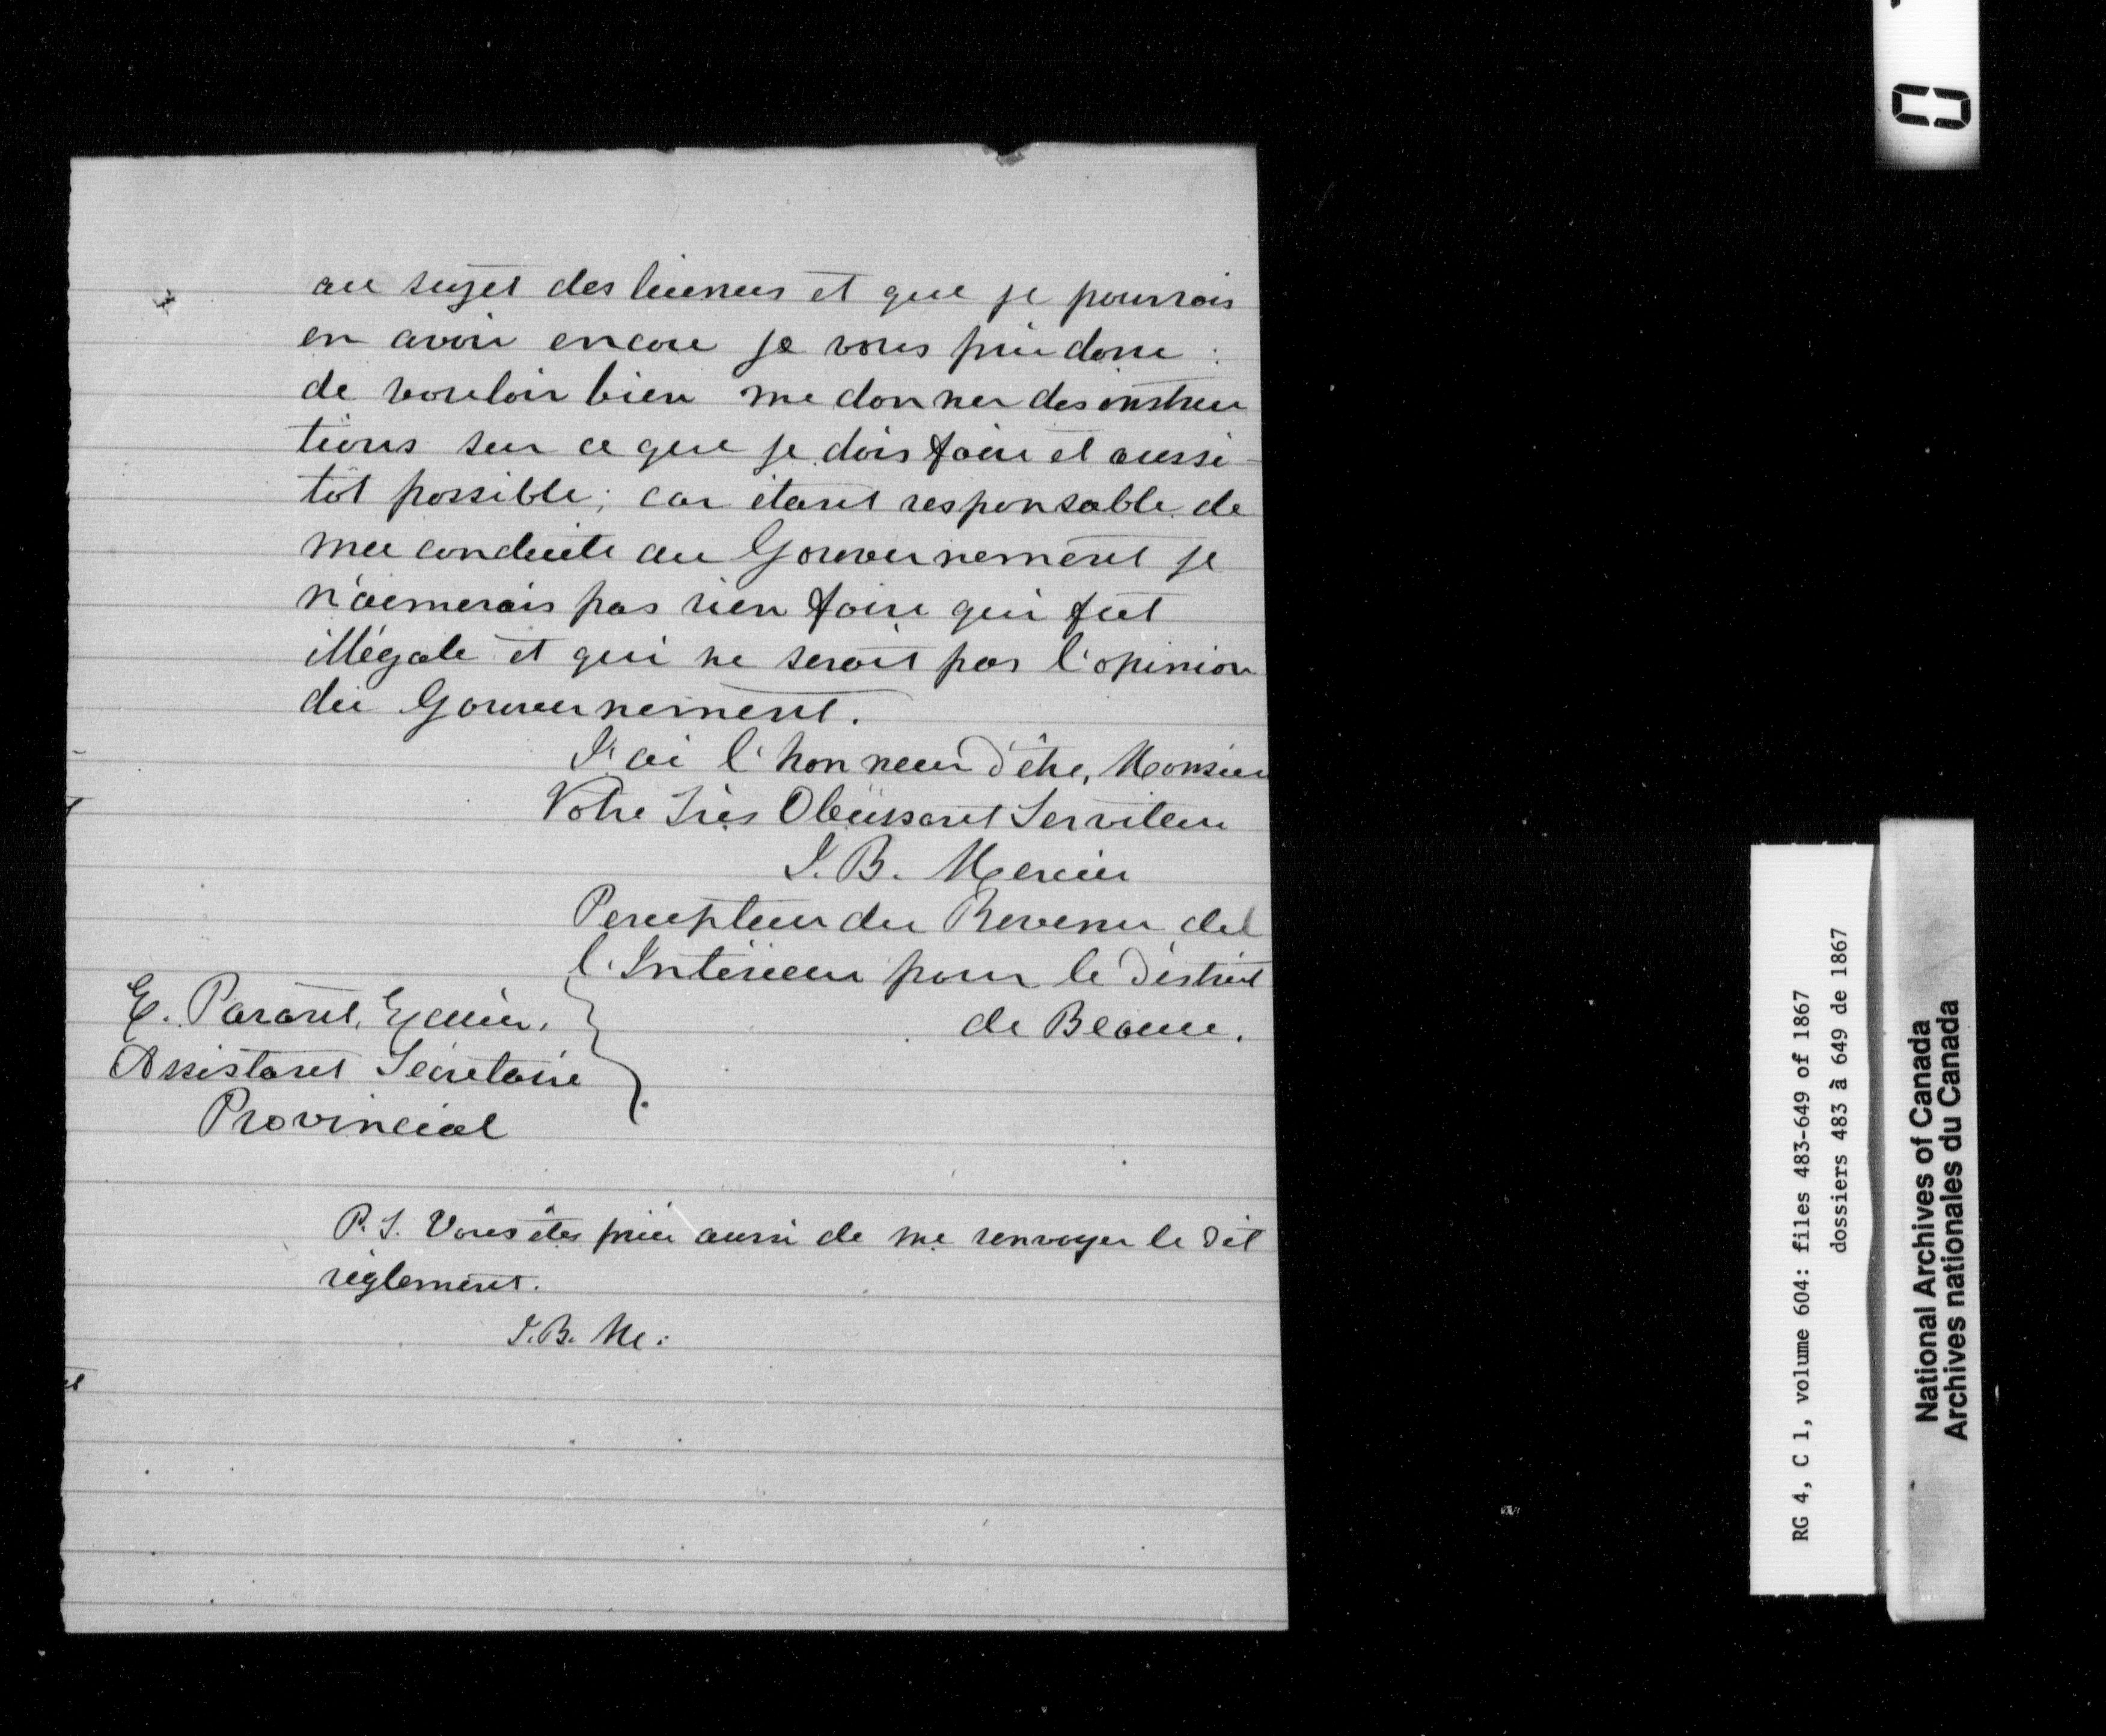 au sujet des licences et que je pourrais
en avoir encore je vous prie donc :
de vouloir bien me donner des instruc
tions sur ce que je dois faire et aussi-
tôt possible; car étant responsable de
ma conduite au Gouvernement je
n'aimerais pas rien faire qui fut
illégale et qui ne serait pas l'opinion
du Gouvernement.
J'ai l'honneur d'être, Monsieur
Votre Très Obéissant Serviteur
J. B. Mercier
Percepteur du Revenu de
l'Intérieur pour le District
de Beauce.
E. Parant, Ecuier,
Assistant Secrétaire
Provincial
P.S. Vous êtes priér aussi de me renvoyer le dit
règlement.
J.B. M:
RG 4, C 1, volume 604: files 483-649 of 1867
dossiers 483 à 649 de 1867
National Archives of Canada
Archives nationales du Canada